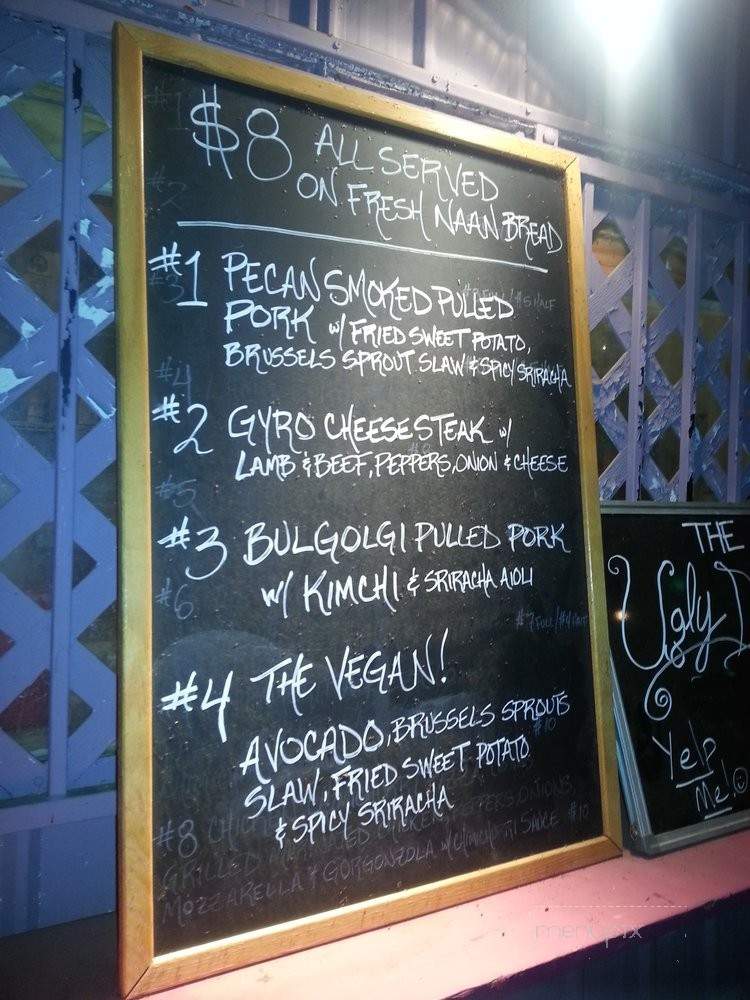 $8 ALL SERVED
ON FRESH NAAN BREAD
#1 PECAN SMOKED PULLED
PORK w/ FRIED SWEET POTATO,
BRUSSELS SPROUT SLAW & SPICY SRIRACHA
#2 GYRO CHEESESTEAK w/
LAMB & BEEF, PEPPERS, ONION & CHEESE
#3 BULGOLGI PULLED PORK
w/ KIMCHI & SRIRACHA AIOLI
#4 THE VEGAN!
AVOCADO, BRUSSELS SPROUTS
SLAW, FRIED SWEET POTATO
& SPICY SRIRACHA
#3
#4
#5
#6
#10
#8
GRILLED PEPPERS, ONIONS,
MOZZARELLA & GORGONZOLA w/ SAUCE #10
THE
Ugly D
Yelp
Me!
menupix